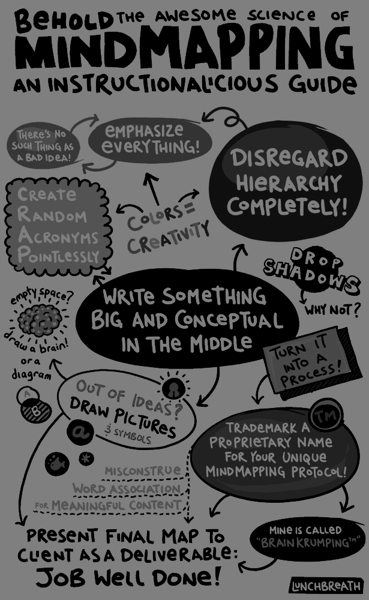 BEHOLD THE AWESOME SCIENCE OF
MINDMAPPING
AN INSTRUCTIONALICIOUS GUIDE
THERE'S NO
SUCH THING AS
A BAD IDEA!
EMPHASIZE
EVERYTHING!
DISREGARD
HIERARCHY
COMPLETELY!
CREATE
RANDOM
ACRONYMS
POINTLESSLY
COLORS=
CREATIVITY
DROP
SHADOWS
WHY NOT?
empty space?
draw a brain!
or a
diagram
A
B
WRITE SOMETHING
BIG AND CONCEPTUAL
IN THE MIDDLE
TURN IT
INTO A
PROCESS!
OUT OF IDEAS?
DRAW PICTURES
& SYMBOLS
@
*
TM
TRADEMARK A
PROPRIETARY NAME
FOR YOUR UNIQUE
MINDMAPPING PROTOCOL!
MISCONSTRUE
WORD ASSOCIATION
FOR MEANINGFUL CONTENT
MINE IS CALLED
"BRAIN KRUMPING™"
PRESENT FINAL MAP TO
CLIENT AS A DELIVERABLE:
JOB WELL DONE!
LUNCHBREATH